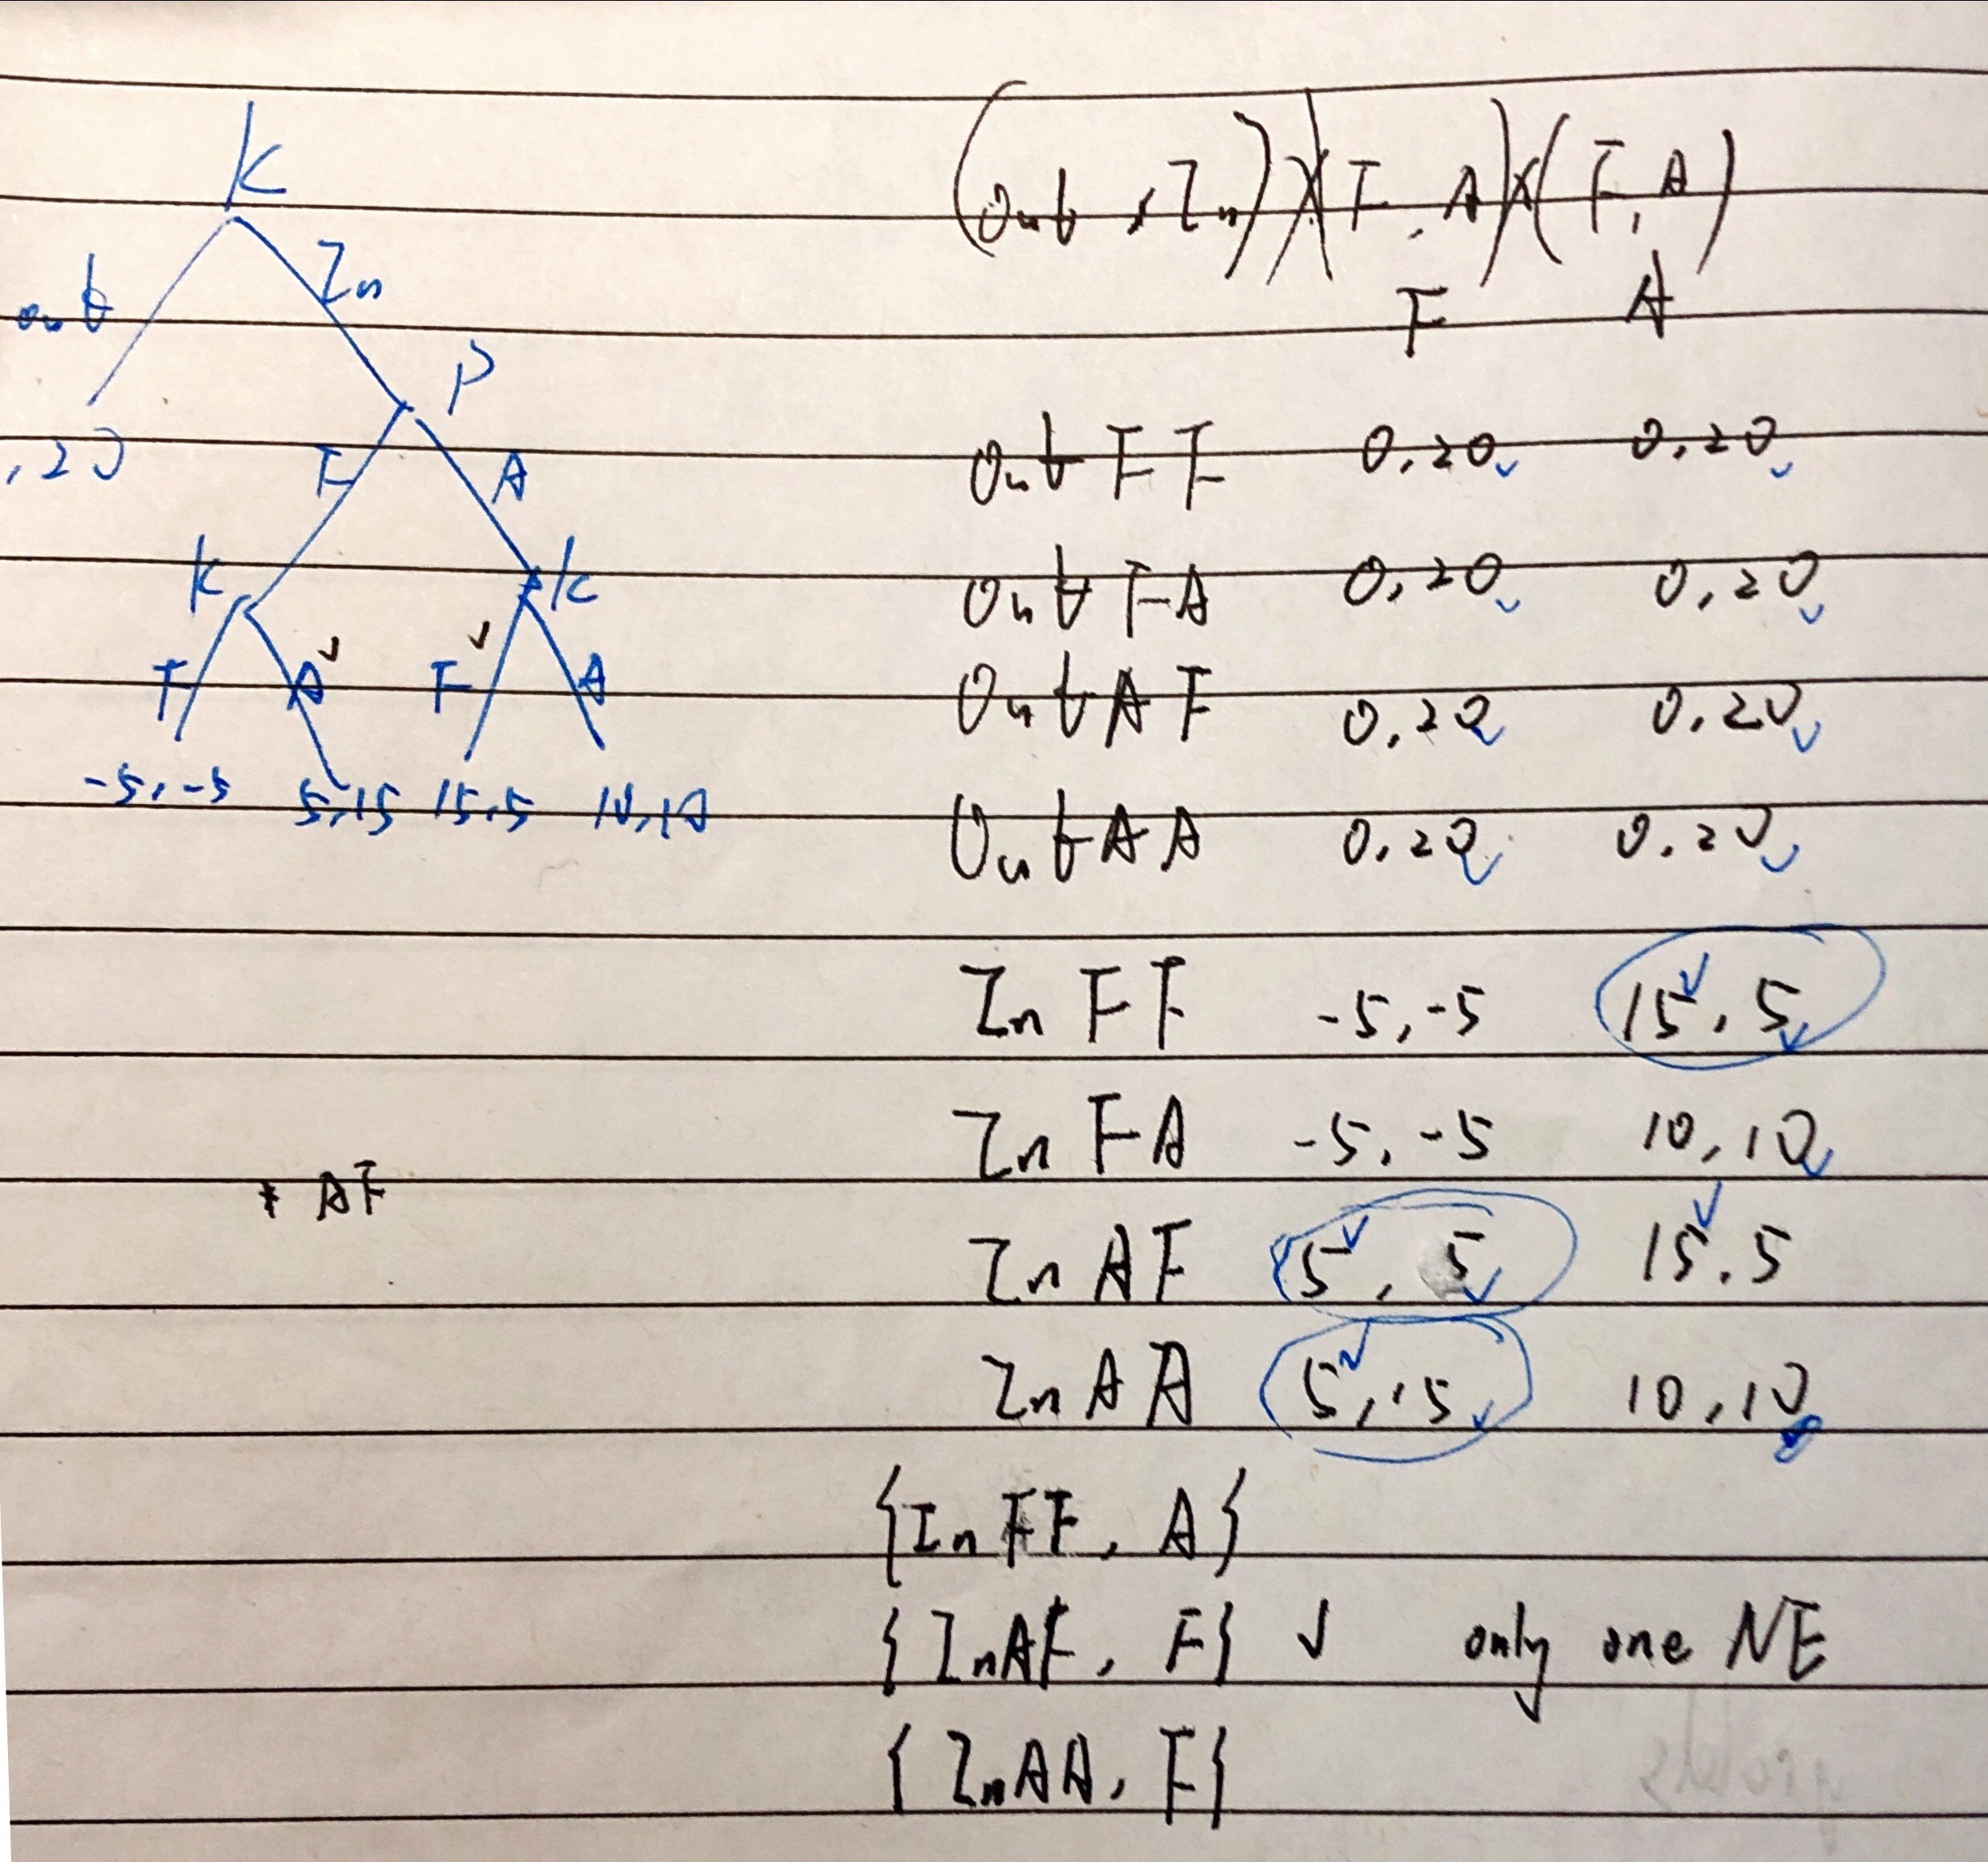 K
out In
P
, 20
F A
K K
F A F A
-5, -5 5,15 15,5 10,10
* AF
(Out, In) X (F, A) X (F, A)
F A
Out F F 0,20 0,20
Out F A 0,20 0,20
Out A F 0,20 0,20
Out A A 0,20 0,20
In F F -5,-5 15,5
In F A -5,-5 10,10
In A F 5, 5 15,5
In A A 5,15 10,10
{In FF, A}
{InAF, F} ✓ only one NE
{InAA, F}